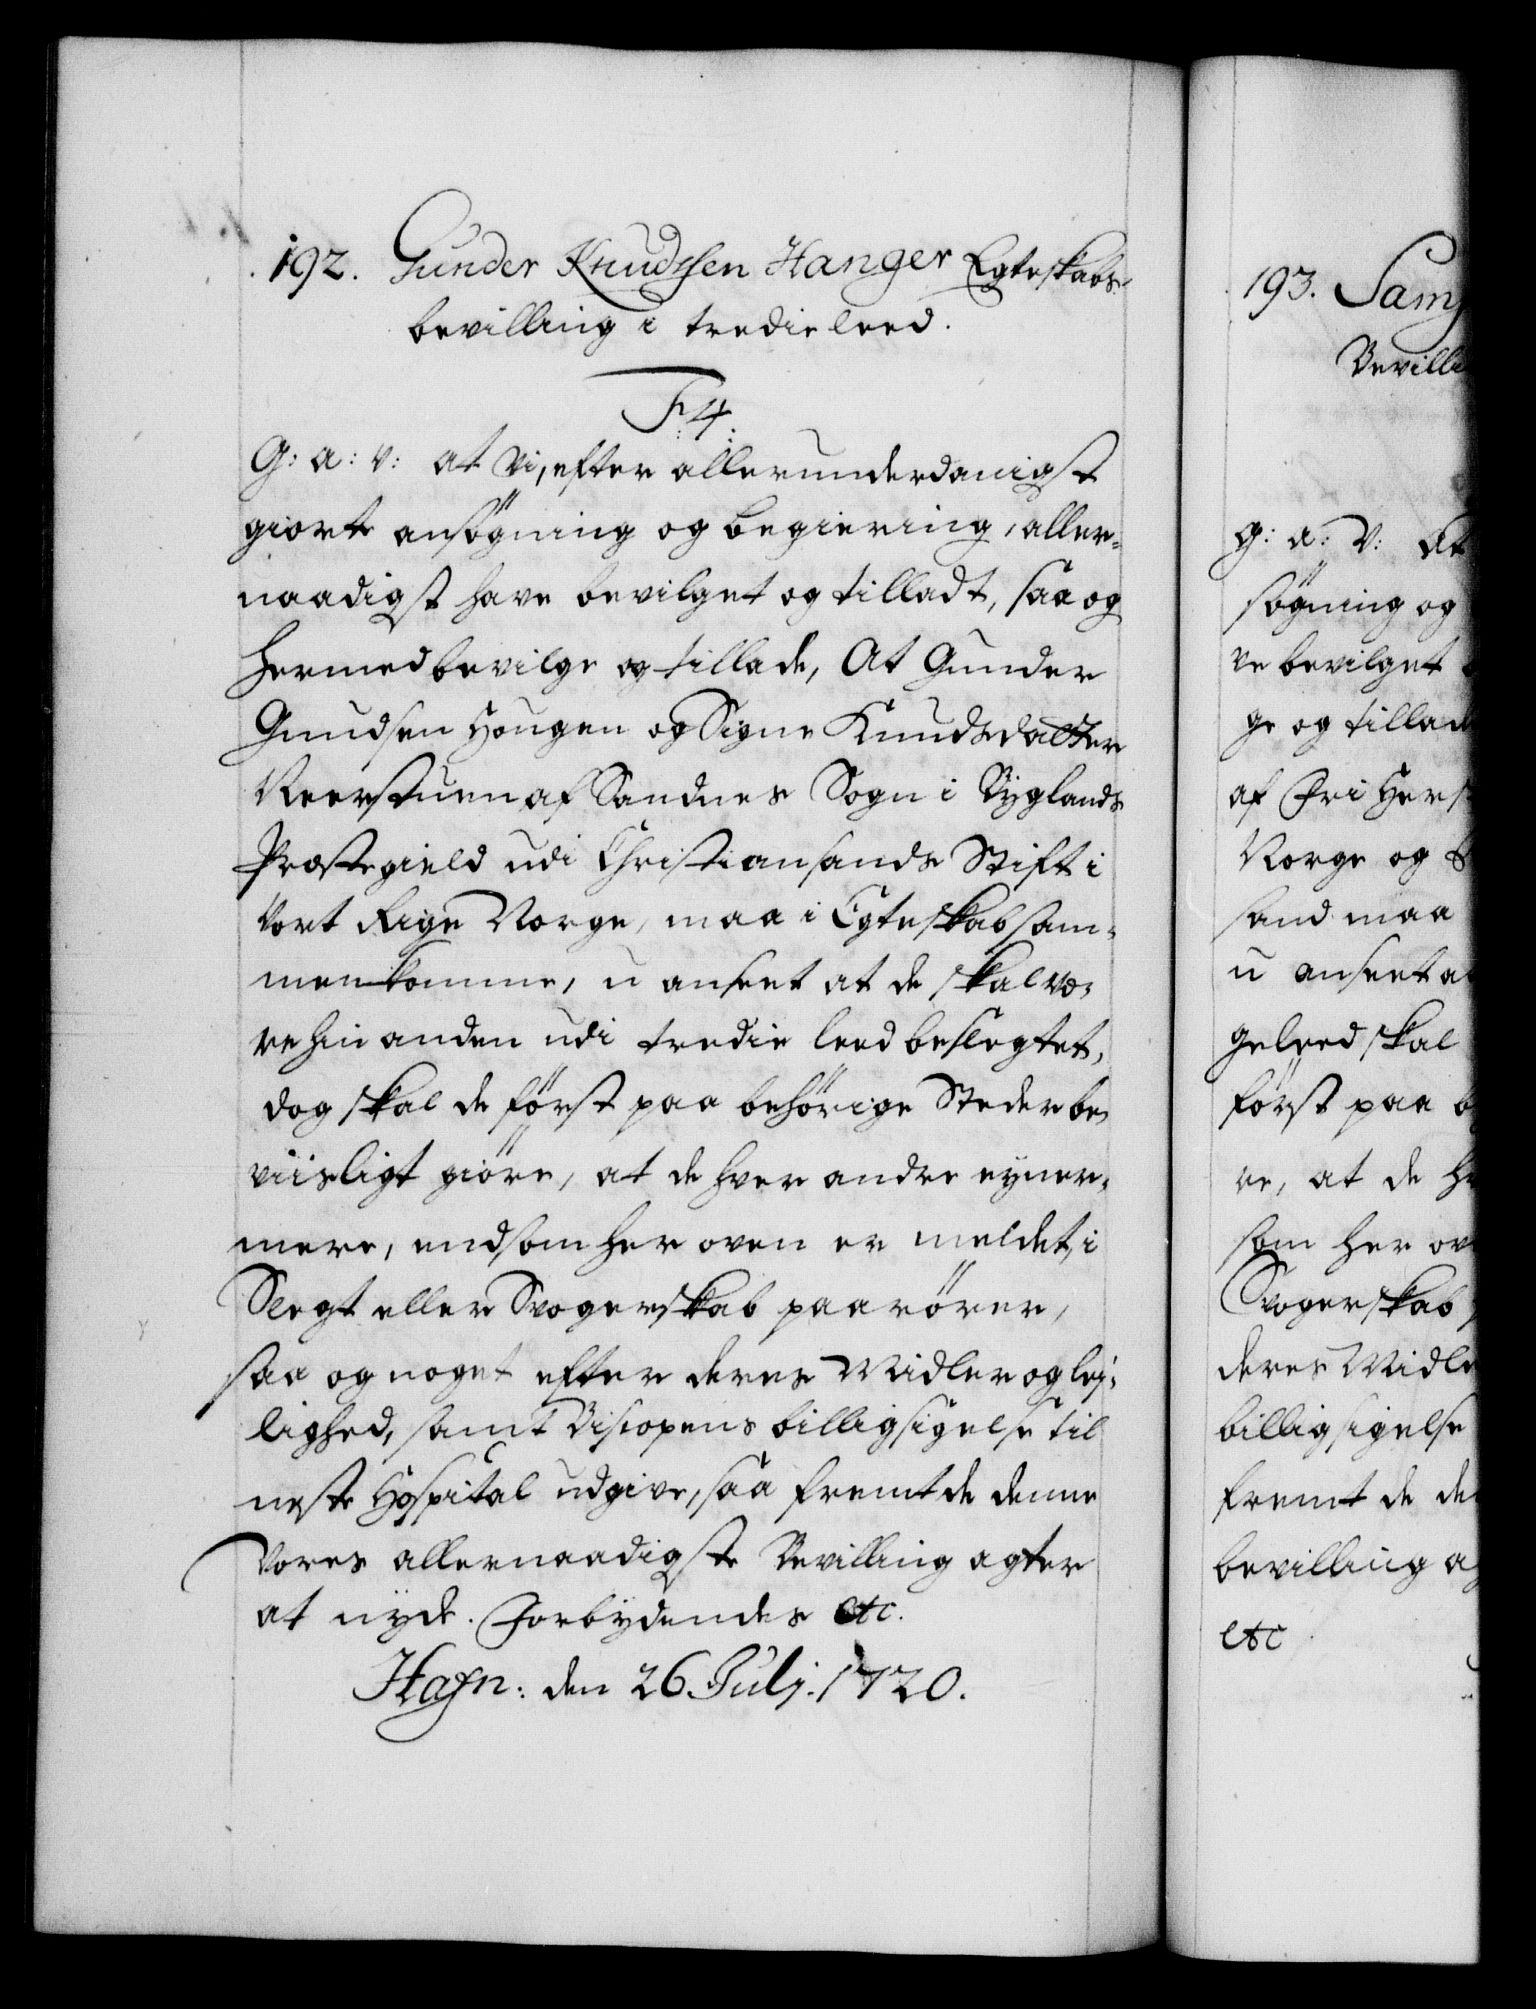 192. Gunder Knudssen Hanger Egteskabs-
bevilling i tredie leed.
F. 4.
G: a: v: at vi, efter allerunderdanigst
giorte ansøgning og begiering, aller-
naadigst have bevilget og tilladt, saa og
hermed bevilge og tillade, At Gunder
Gundsen Hougen og Signe Knudsdatter
Neerstuen af Sandnes Sogn i Byglands
Præstegield udi Christiansands Stift i
Vort Rige Norge, maa i Egteskab sam-
menkomme, u anseet at de skal væ-
re hin anden udi tredie leed beslegtet,
dog skal de først paa behørige Steder be-
viisligt giøre, at de hver andre ey ner-
mere, end som her oven er meldet, i
Slegt eller Svogerskab paarører,
saa og noget efter deres Midler og lej-
lighed, samt Biscopens billigsigelse til
neste Hospital udgive, saa fremt de denne
Vores allernaadigste Bevilling agter
at nyde. Forbydendes etc.
Hafn: den 26 Julj. 1720.
193. Sam
Bevilli
G: a: V: At
søgning og
ve bevilget
ge og tillade
af Fri Hers
Norge og
sand maa
u anseet a
geleed skal
først paa b
re, at de h
som her ov
Svogerskab
deres Midle
billigsigelse
fremt de de
bevilling a
etc